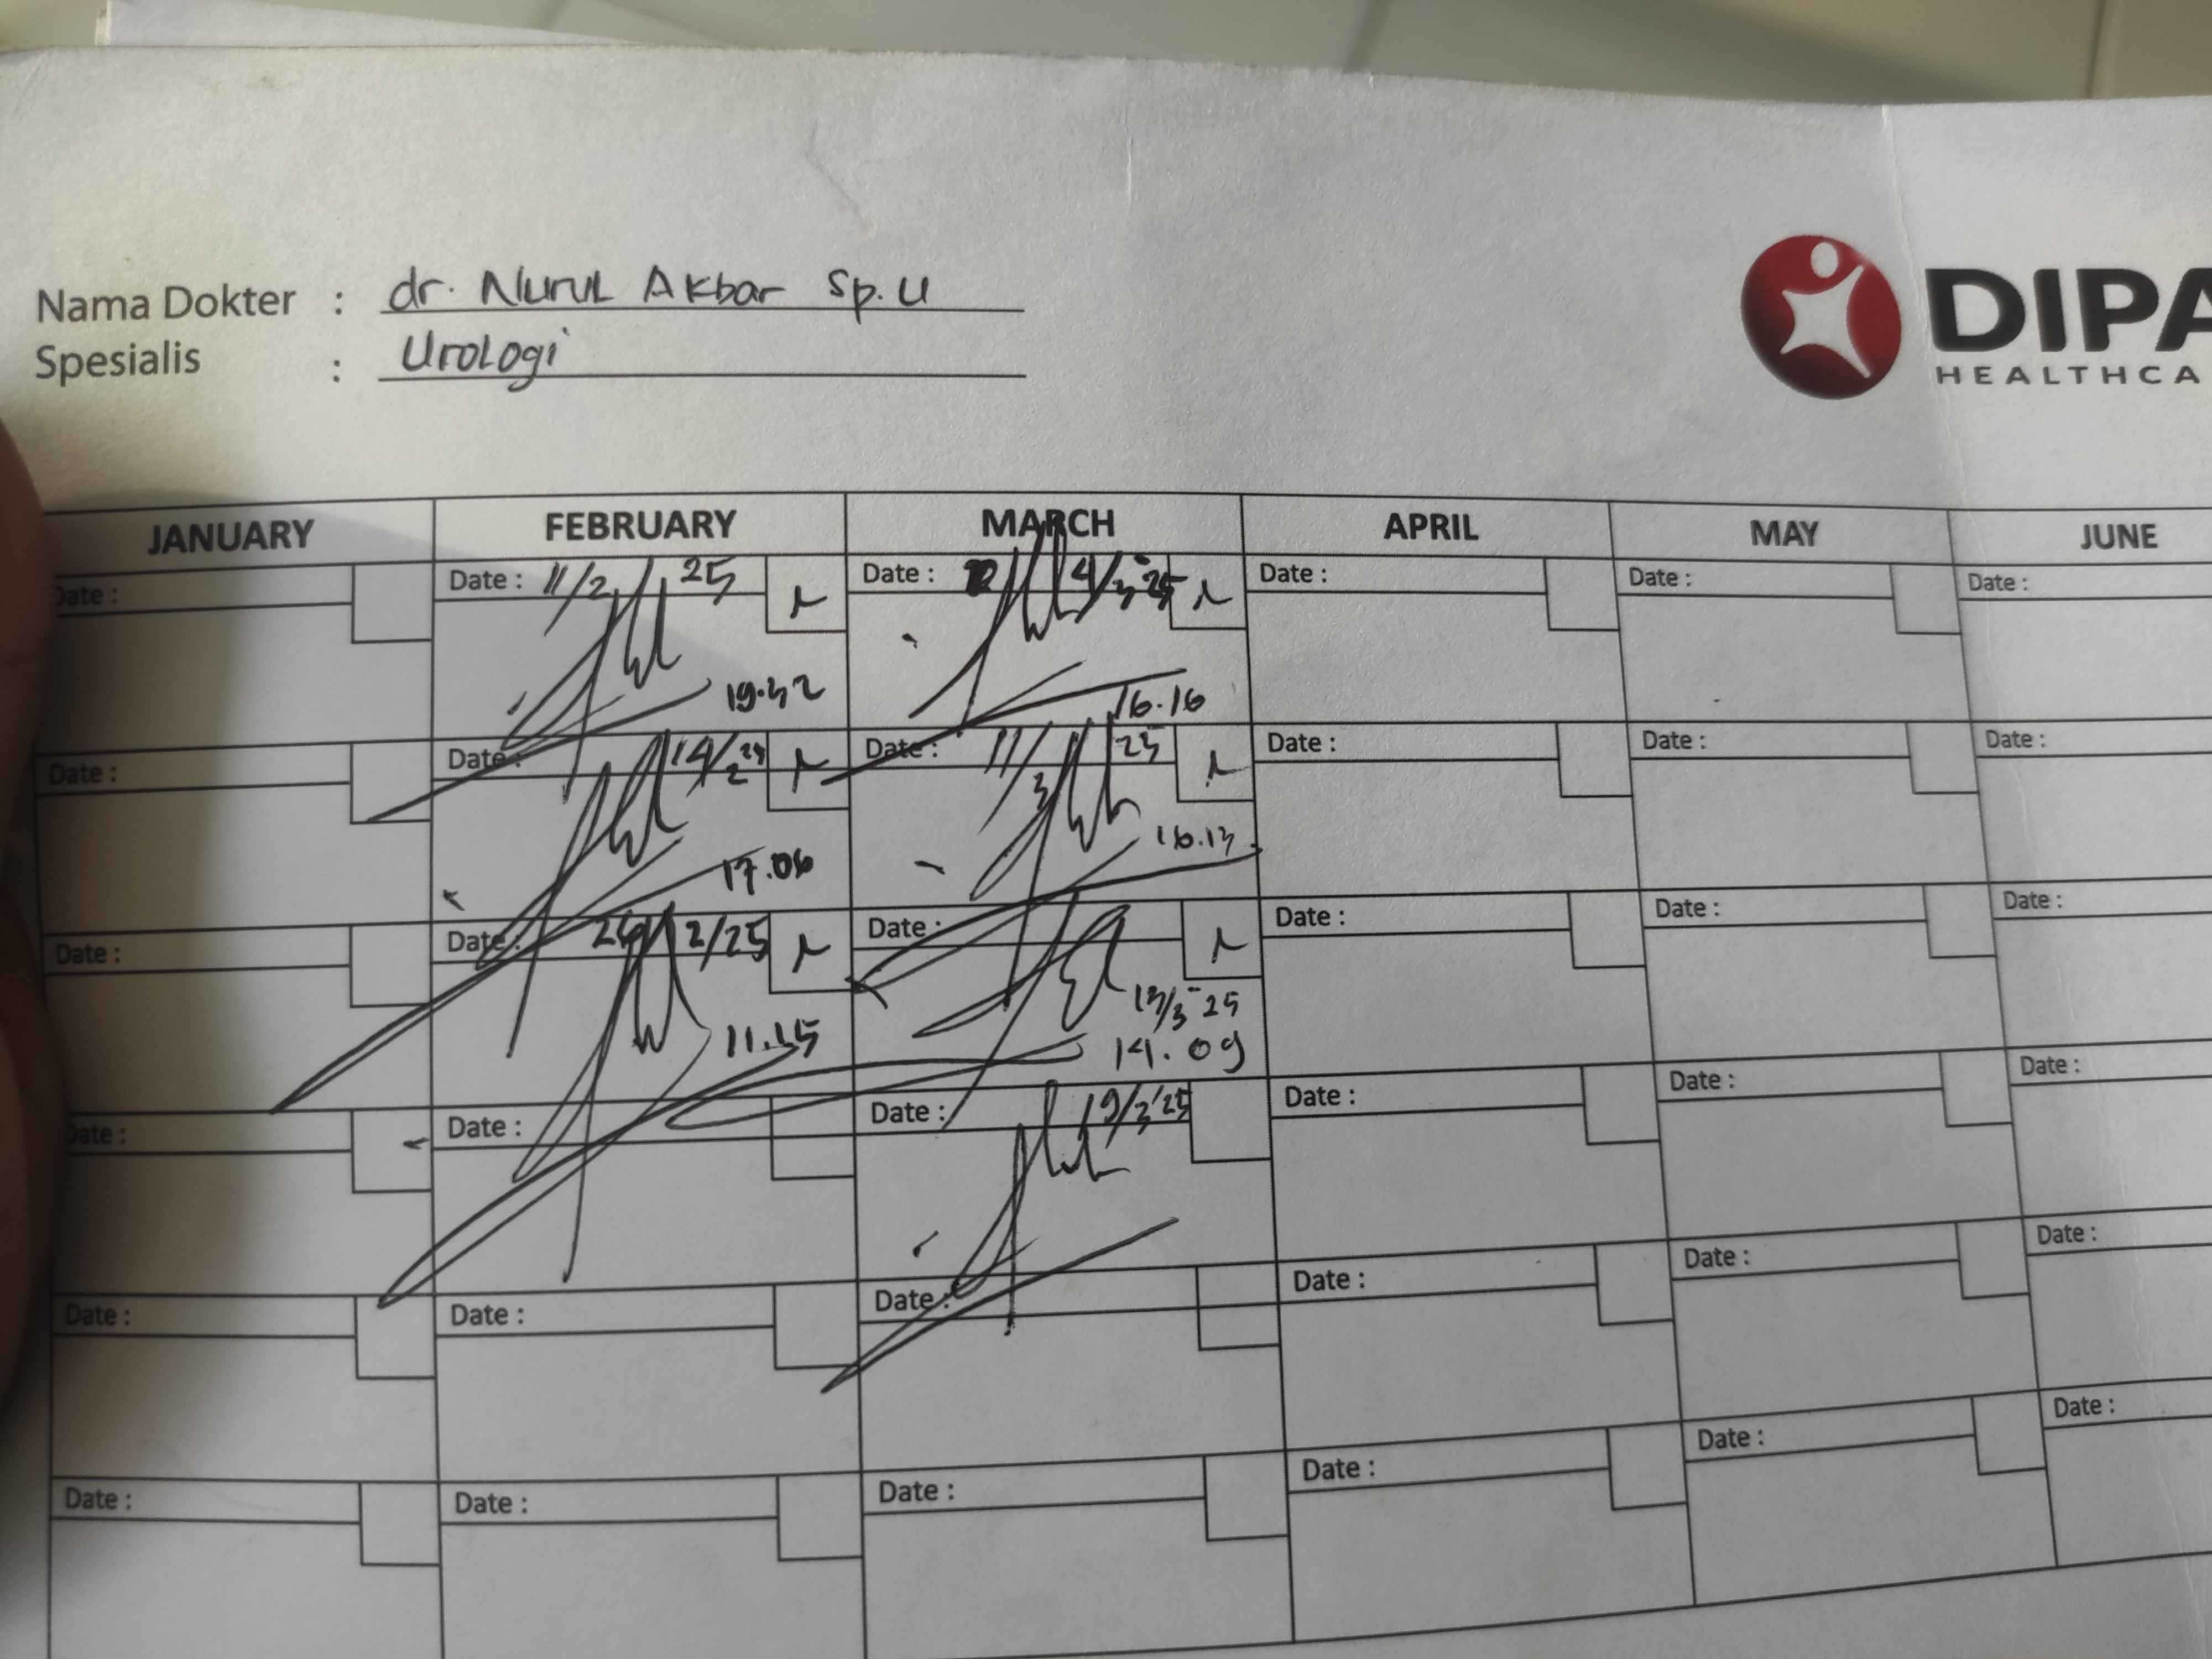 Nama Dokter : dr. Nurul Akbar Sp.U
Spesialis : Urologi
DIPA
HEALTHCA
JANUARY FEBRUARY MARCH APRIL MAY JUNE
Date : Date : 11/2 25 Date : 4/3 25 Date : Date : Date :
19.32 16.16
Date : Date : 14/2 25 Date : 11/3 25 Date : Date : Date :
17.06 16.13
Date : Date : 2/25 Date : Date : Date : Date :
11.35 13/3 25
14.09
Date : Date : Date : 19/3 25 Date : Date : Date :
Date : Date : Date : Date : Date : Date :
Date : Date : Date : Date : Date : Date :